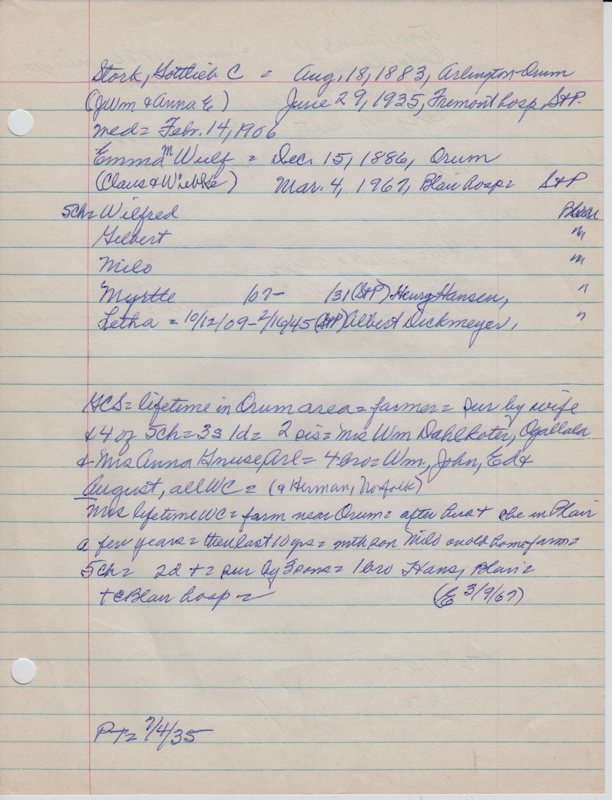 Stork, Gottlieb C = Aug, 18, 1883, Arlington-Orum
(J Wm & Anna E) June 29, 1935, Fremont hosp, StP.
med = Febr. 14, 1906
Emma M Wulf = Dec. 15, 1886, Orum
(Claus & Wiebke) Mar. 4, 1967, Blair hosp = StP
5ch = Wilfred Blair
Gilbert "
Milo "
Myrtle 107- 131 (StP) Henry Hansen, "
Letha = 10/12/09-2/16/45 (StP) Albert Dickmeyer, "
GCS = lifetime in Orum area = farmer = sur by wife
& 4 of 5ch = 3s 1d = 2 sis = Mrs Wm Dahlkoter, Ogallala
& Mrs Anna Gnuse Arl = 4 bro = Wm, John, Ed &
August, all WC = (& Herman, Norfolk)
Mrs lifetime WC = farm near Orum = after hus + she in Blair
a few years = then last 10 yrs = with son Milo on old home farm =
5ch = 2d + = sur by 3 sons = 1 bro Hans, Blair =
+ @ Blair hosp = (E 3/9/67)
PT = 7/4/35